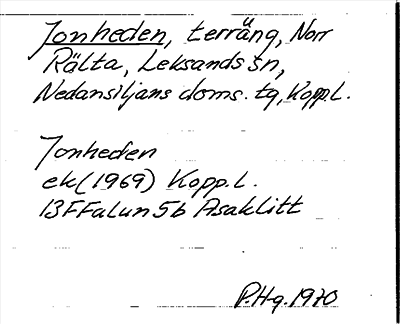 Jonheden, terräng, Norr
Rälta, Leksands sn,
Nedansiljans doms. tg, Kopp.l.
Jonheden
ek (1969) Kopp.l.
13F Falun 5b Asaklitt
P.Hg. 1970